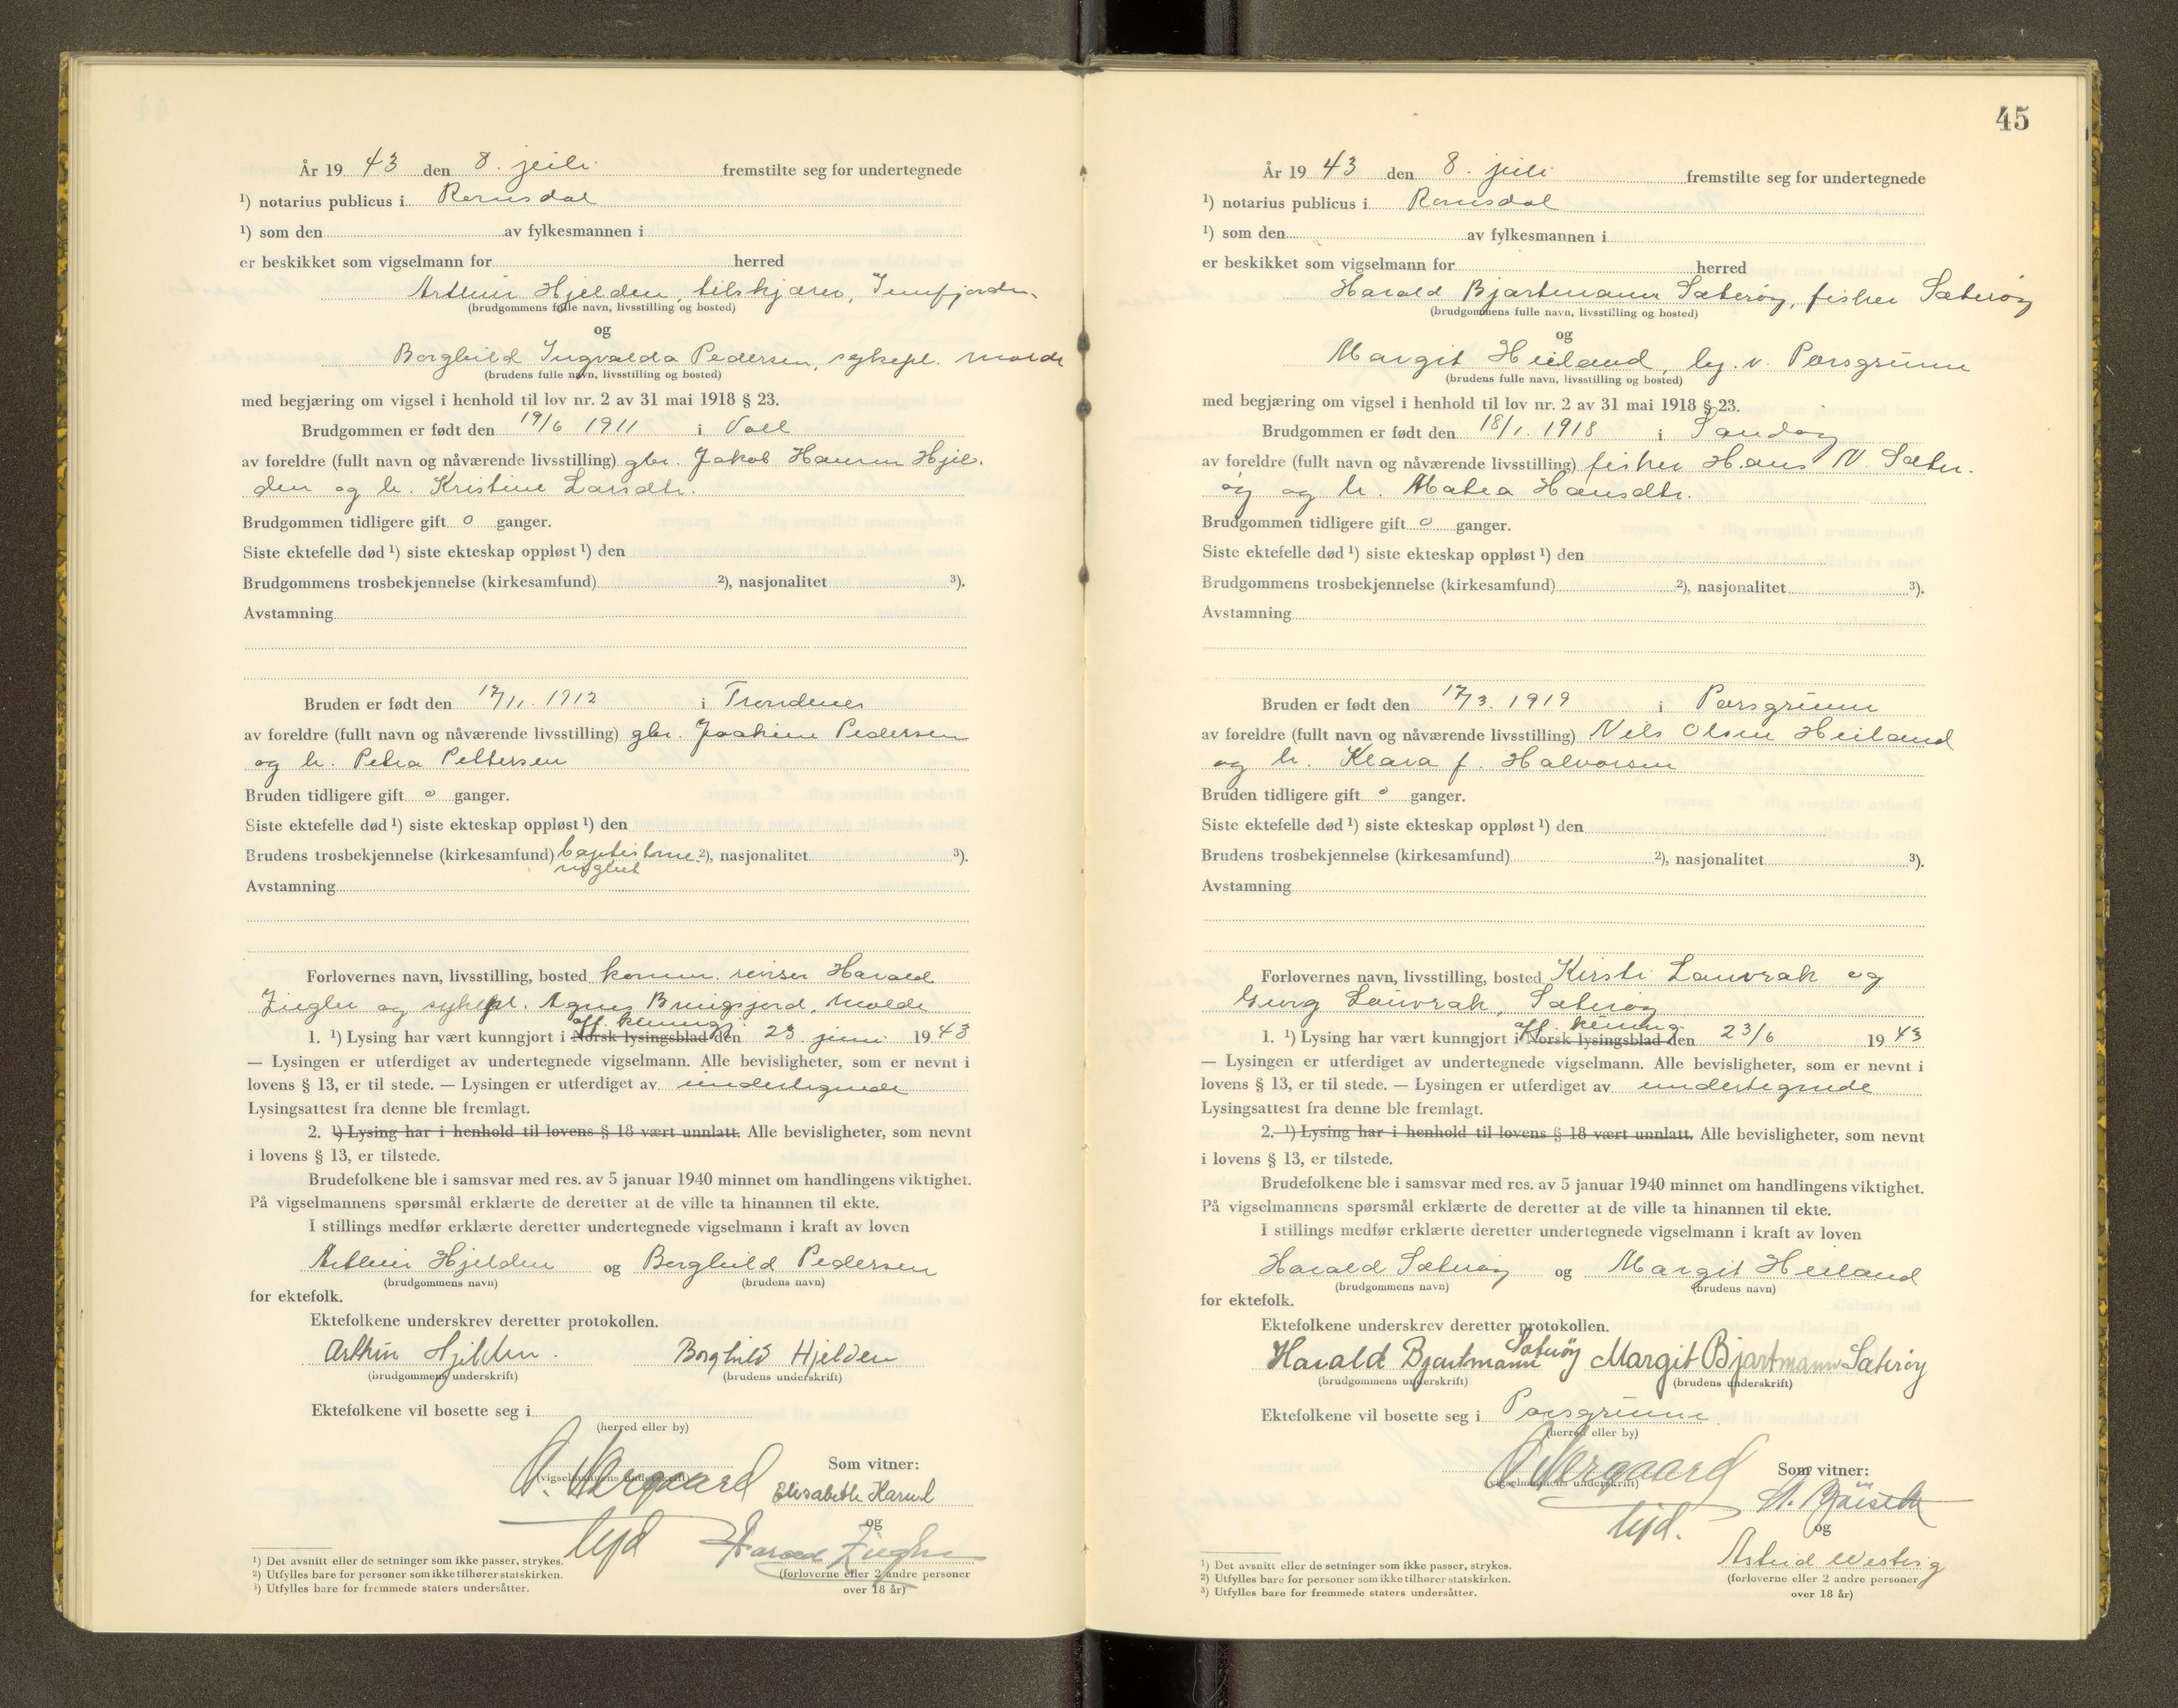 År 19 43 den 8. juli fremstilte seg for undertegnede
¹) notarius publicus i Romsdal
¹) som den av fylkesmannen i
er beskikket som vigselmann for herred
Arthur Hjelden, tilskjærer, Innfjorden.
(brudgommens fulle navn, livsstilling og bosted)
og
Borghild Ingvalda Pedersen, sykepl. Molde
(brudens fulle navn, livsstilling og bosted)
med begjæring om vigsel i henhold til lov nr. 2 av 31 mai 1918 § 23.
Brudgommen er født den 19/6 1911 i Voll
av foreldre (fullt navn og nåværende livsstilling) gbr. Jakob Hansen Hjel-
den og h. Kristine Larsdtr.
Brudgommen tidligere gift 0 ganger.
Siste ektefelle død ¹) siste ekteskap oppløst ¹) den
Brudgommens trosbekjennelse (kirkesamfund) ²), nasjonalitet ³).
Avstamning
Bruden er født den 17/11. 1912 i Trondenes
av foreldre (fullt navn og nåværende livsstilling) gbr. Joakim Pedersen
og h. Petra Pettersen
Bruden tidligere gift 0 ganger.
Siste ektefelle død ¹) siste ekteskap oppløst ¹) den
Brudens trosbekjennelse (kirkesamfund) ²), nasjonalitet ³).
Avstamning
Forlovernes navn, livsstilling, bosted komm. revisor Harald
Ziegler og sykepl. Agnes Molde
off. kunngj.
1. ¹) Lysing har vært kunngjort i Norsk lysingsblad den 23 juni 19 43
— Lysingen er utferdiget av undertegnede vigselmann. Alle bevisligheter, som er nevnt i
lovens § 13, er til stede. — Lysingen er utferdiget av undertegnede
Lysingsattest fra denne ble fremlagt.
2. ¹) Lysing har i henhold til lovens § 18 vært unnlatt. Alle bevisligheter, som nevnt
i lovens § 13, er tilstede.
Brudefolkene ble i samsvar med res. av 5 januar 1940 minnet om handlingens viktighet.
På vigselmannens spørsmål erklærte de deretter at de ville ta hinannen til ekte.
I stillings medfør erklærte deretter undertegnede vigselmann i kraft av loven
Arthur Hjelden og Borghild Pedersen
(brudgommens navn) (brudens navn)
for ektefolk.
Ektefolkene underskrev deretter protokollen.
Arthur Hjelden. Borghild Hjelden
(brudgommens underskrift) (brudens underskrift)
Ektefolkene vil bosette seg i
(herred eller by)
Som vitner:
(vigselmannens underskrift)
Elisabeth
og
Harald Ziegler
(forloverne eller 2 andre personer
over 18 år)
¹) Det avsnitt eller de setninger som ikke passer, strykes.
²) Utfylles bare for personer som ikke tilhører statskirken.
³) Utfylles bare for fremmede staters undersåtter.
45
År 19 43 den 8. juli fremstilte seg for undertegnede
¹) notarius publicus i Romsdal
¹) som den av fylkesmannen i
er beskikket som vigselmann for herred
Harald Bjartmann Sæterøy, fisker Sæterøy
(brudgommens fulle navn, livsstilling og bosted)
og
Margit Heiland, Porsgrunn
(brudens fulle navn, livsstilling og bosted)
med begjæring om vigsel i henhold til lov nr. 2 av 31 mai 1918 § 23.
Brudgommen er født den 18/1. 1918 i Sandøy
av foreldre (fullt navn og nåværende livsstilling) fisker Hans N. Sæter-
øy og h. Matea Hansdtr.
Brudgommen tidligere gift 0 ganger.
Siste ektefelle død ¹) siste ekteskap oppløst ¹) den
Brudgommens trosbekjennelse (kirkesamfund) ²), nasjonalitet ³).
Avstamning
Bruden er født den 17/3. 1919 i Porsgrunn
av foreldre (fullt navn og nåværende livsstilling) Nils Olsen Heiland
og h. Klara f. Halvorsen
Bruden tidligere gift 0 ganger.
Siste ektefelle død ¹) siste ekteskap oppløst ¹) den
Brudens trosbekjennelse (kirkesamfund) ²), nasjonalitet ³).
Avstamning
Forlovernes navn, livsstilling, bosted Kirsti Lauvrak og
Georg Lauvrak, Sæterøy
off. kunng.
1. ¹) Lysing har vært kunngjort i Norsk lysingsblad den 23/6 19 43
— Lysingen er utferdiget av undertegnede vigselmann. Alle bevisligheter, som er nevnt i
lovens § 13, er til stede. — Lysingen er utferdiget av undertegnede
Lysingsattest fra denne ble fremlagt.
2. ¹) Lysing har i henhold til lovens § 18 vært unnlatt. Alle bevisligheter, som nevnt
i lovens § 13, er tilstede.
Brudefolkene ble i samsvar med res. av 5 januar 1940 minnet om handlingens viktighet.
På vigselmannens spørsmål erklærte de deretter at de ville ta hinannen til ekte.
I stillings medfør erklærte deretter undertegnede vigselmann i kraft av loven
Harald Sæterøy og Margit Heiland
(brudgommens navn) (brudens navn)
for ektefolk.
Ektefolkene underskrev deretter protokollen.
Harald Bjartmann Sæterøy Margit Bjartmann Sæterøy
(brudgommens underskrift) (brudens underskrift)
Ektefolkene vil bosette seg i Porsgrunn.
(herred eller by)
Som vitner:
(vigselmannens underskrift)
og
Astrid
(forloverne eller 2 andre personer
over 18 år)
¹) Det avsnitt eller de setninger som ikke passer, strykes.
²) Utfylles bare for personer som ikke tilhører statskirken.
³) Utfylles bare for fremmede staters undersåtter.